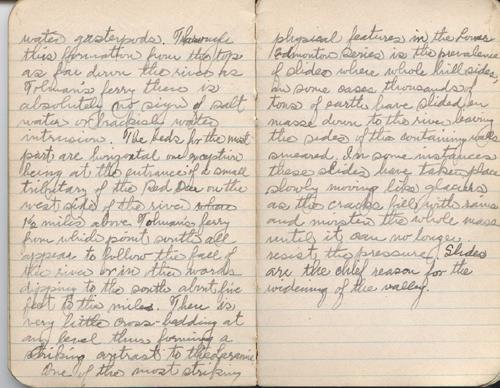 water gasterpods. Through
this formation from the top
as far down the river as
Tolmans ferry there is
absolutely no sign of salt
water or brackish water
intrusion. The beds for the most
part are horizontal one exception
being at the entrance of a small
tributary of the Red Deer on the
west side of the river
1½ miles above Tolmans ferry
from which point south all
appear to follow the fall of
the river or in other words
dipping to the south about five
feet to the mile. There is
very little cross-bedding at
any level thus forming a
striking contrast to the Laramie
One of the most striking
physical features in the Lower
Edmonton Series is the prevalence
of slides where whole hill sides,
in some cases thousands of
tons of earth have slidden en
masse down to the river leaving
the sides of the containing walls
smeared. In some instances
these slides have taken place
slowly moving like glaciers
as the cracks fill with rains
and moisten the whole mass
until it can no longer
resist the pressure. Slides
are the chief reason for the
widening of the valley.